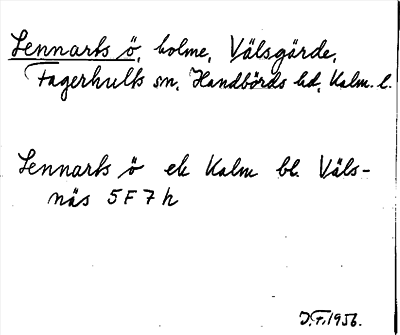 Lennarts ö, holme, Välsgärde,
Fagerhults sn, Handbörds hd, Kalm. l.
Lennarts ö ek Kalm bl. Väls-
näs 5F7h
J.F. 1956.